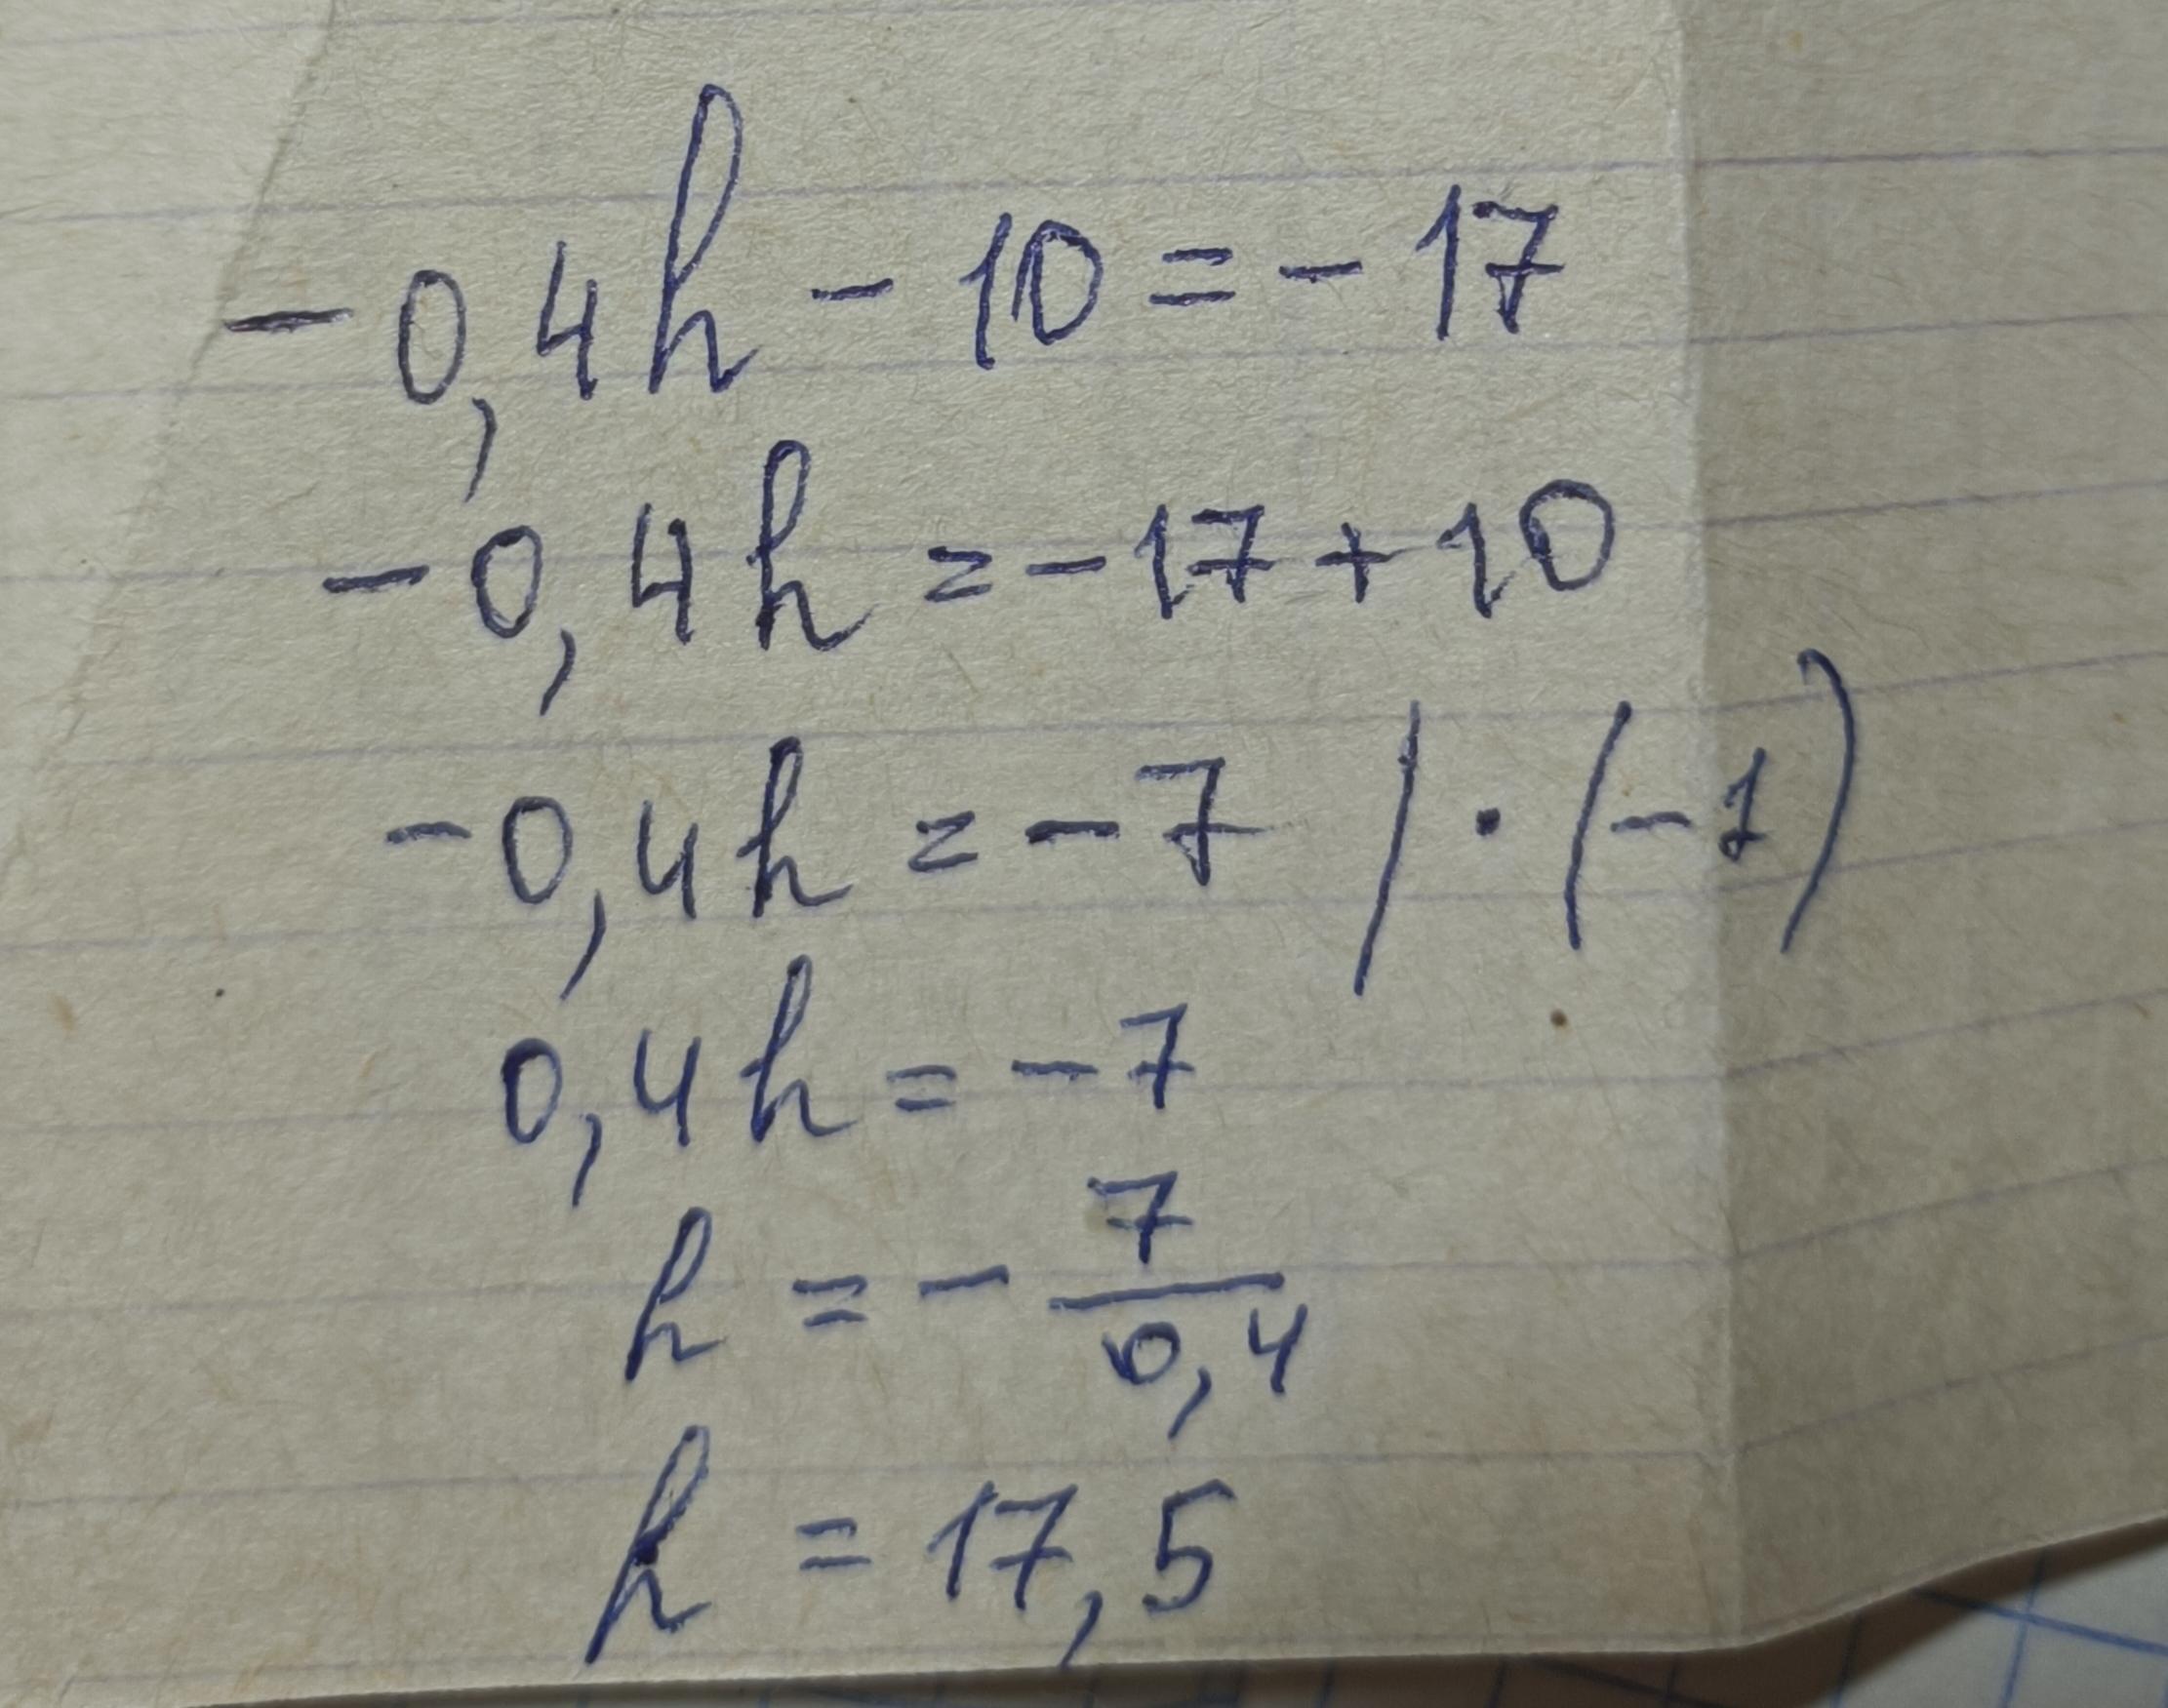 -0,4h - 10 = - 17
-0,4h = -17 + 10
-0,4h = -7 | · (-1)
0,4h = -7
h = - 7/0,4
h = 17,5